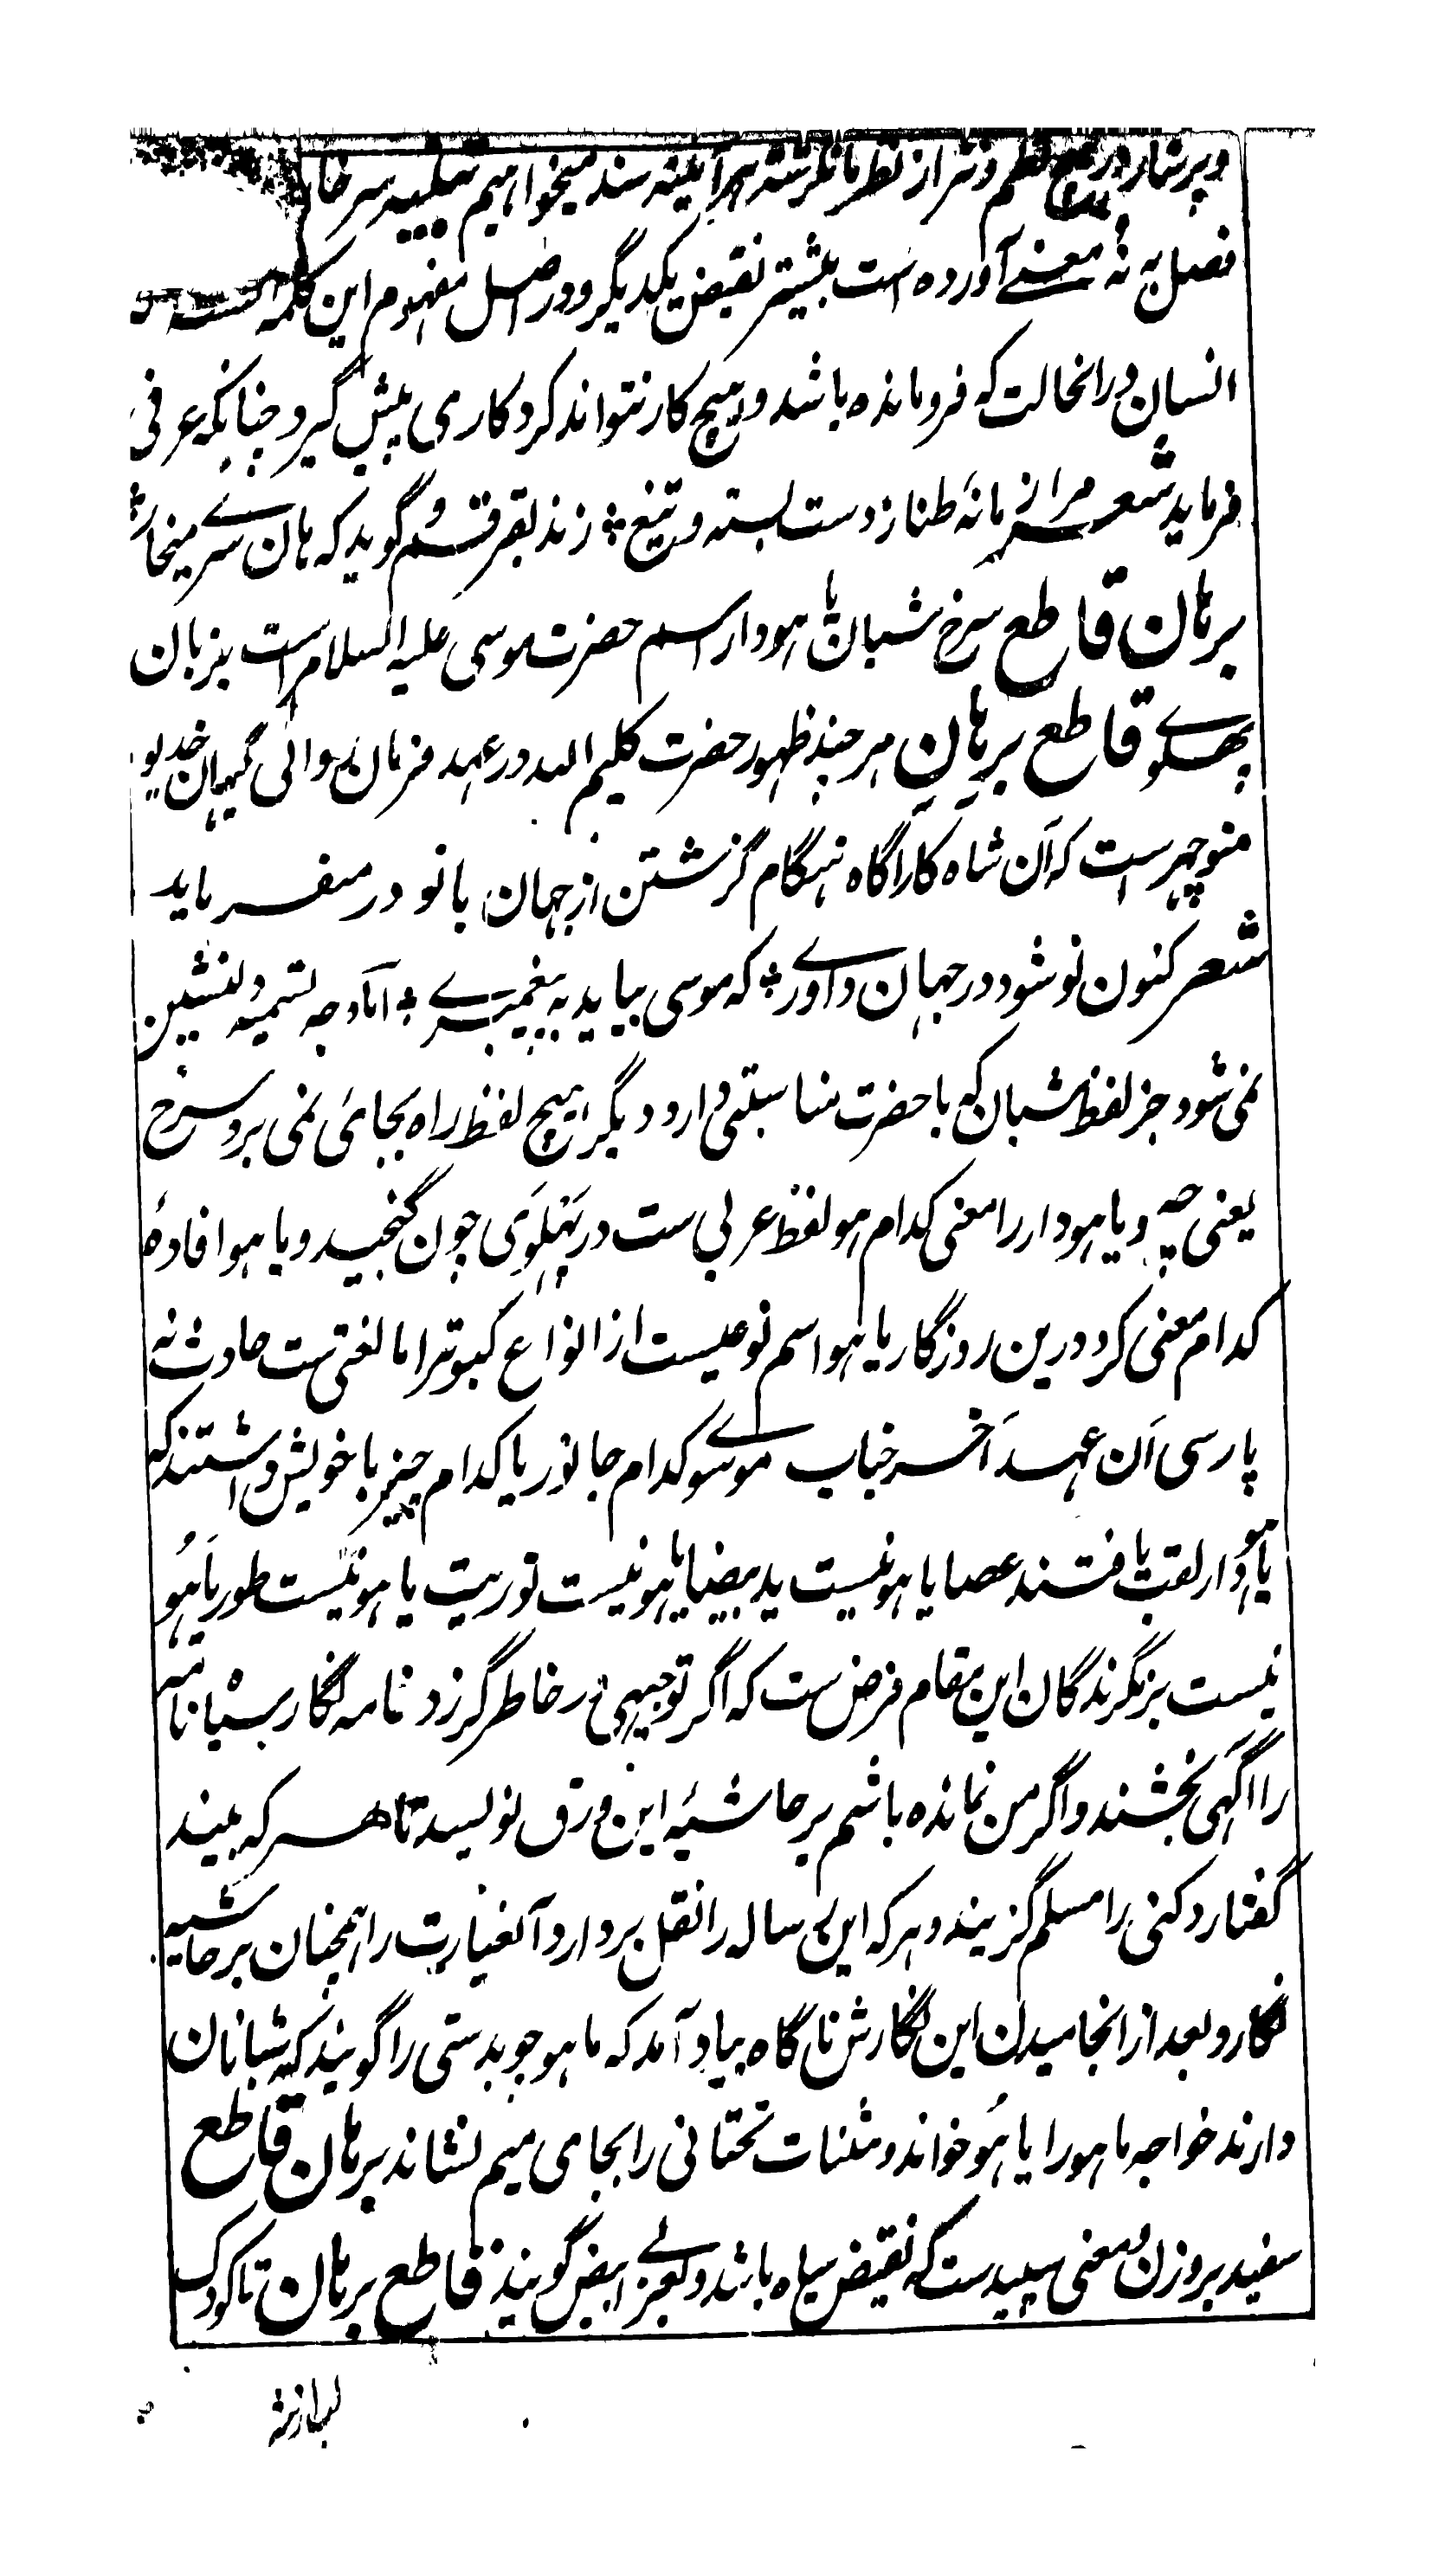 و پرستار در هیچ نظم و نثر از نظر ما نگزشته هر آئینه سند میخواهیم تنبیه سرخا
فصل به نه معنے آورده است بیشتر نقیض یکدیگر و در اصل مفهوم این کلمه
انسان در انحالت که فرومانده باشد و هیچ کار نتواند کرد کاری پیش گیرد چنانکه عرفی
فرماید شعر مرا زمانهٔ طناز دست بسته و تیغ ؛ زند بفرقم و گوید که هان سرے میخار ؛
برهان قاطع سرخ شبان باهودار اسم حضرت موسی علیه السلام است بزبان
پهلوے قاطع برهان هر چند ظهور حضرت کلیم الله در عهد فرمان روائی گیهان خدیو
منوچهر است که آن شاه کارآگاه هنگام گزشتن از جهان با نوذر میفرماید
شعر کنون نو شود در جهان داورے ؛ که موسی بیاید به پیغمبرے ؛ اما وجه تسمیه دلنشین
نمی شود جز لفظ شبان که با حضرت مناسبتی دارد دیگر هیچ لفظ راه بجائی نمی برد سرخ
یعنی چه و یاهودار را معنی کدام هو لفظ عربی ست در پهلوی چون گنجید و یاهو افادهٔ
کدام معنی کرد درین روزگار یاهو اسم نوعیست از انواع کبوتر اما لغتی ست حادث نه
پارسی آن عهد آخر جناب موسے کدام جانور یا کدام چیز با خویش داشتند که
یاهودار لقب یافتند عصا یاهو نیست ید بیضا یاهو نیست توریت یاهو نیست طور یاهو
نیست بر نگرندگان این مقام فرض ست که اگر توجیهی در خاطر گزرد نامه نگار
را آگهی بخشند و اگر من نمانده باشم بر حاشیهٔ این ورق نویسد تا هر که بیند
گفتار دکنی را مسلم گزیند و هر که این رساله را نقل بردارد آنعبارت را همچنان بر حاشیه
نگارد بعد از انجامیدن این نگارش ناگاه بیاد آمد که باهو چوبدستی را گویند که شبانان
دارند خواجه باهو را یاهو خواند و مثنات تحتانی را بجای میم نشاند برهان قاطع
سفید بر وزن و معنی سپید ست که نقیض سیاه باشد و بعربے ابیض گویند قاطع برهان تا کودک